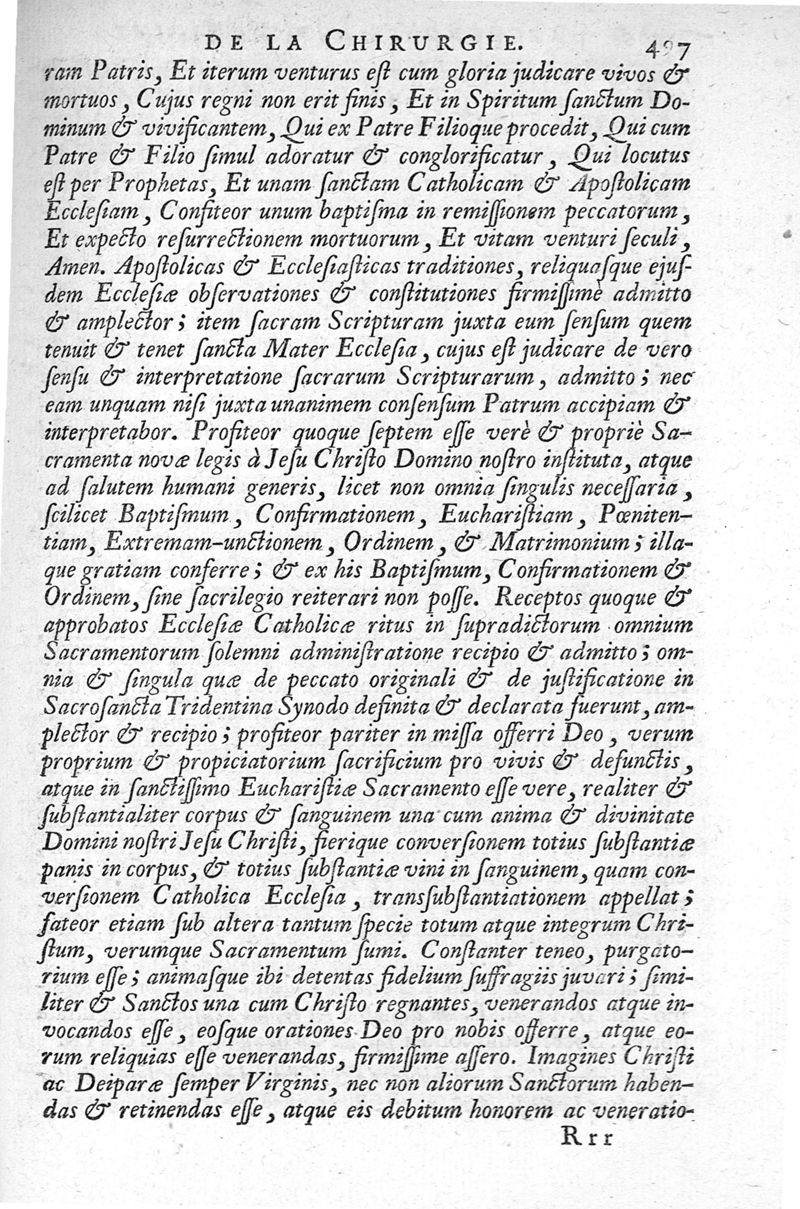 DE LA CHIRURGIE. 497
ram Patris, Et iterum venturus eſt cum gloria judicare vivos &
mortuos, Cujus regni non erit finis, Et in Spiritum ſanctum Do-
minum & vivificantem, Qui ex Patre Filioque procedit, Qui cum
Patre & Filio ſimul adoratur & conglorificatur, Qui locutus
eſt per Prophetas, Et unam ſanctam Catholicam & Apoſtolicam
Eccleſiam, Confiteor unum baptiſma in remiſſionem peccatorum,
Et expecto reſurrectionem mortuorum, Et vitam venturi ſeculi,
Amen. Apoſtolicas & Eccleſiaſticas traditiones, reliquaſque ejuſ-
dem Eccleſiæ obſervationes & conſtitutiones firmiſſimè admitto
& amplector; item ſacram Scripturam juxta eum ſenſum quem
tenuit & tenet ſancta Mater Eccleſia, cujus eſt judicare de vero
ſenſu & interpretatione ſacrarum Scripturarum, admitto; nec
eam unquam niſi juxta unanimem conſenſum Patrum accipiam &
interpretabor. Profiteor quoque ſeptem eſſe verè & propriè Sa-
cramenta novæ legis à Jeſu Chriſto Domino noſtro inſtituta, atque
ad ſalutem humani generis, licet non omnia ſingulis neceſſaria,
ſcilicet Baptiſmum, Confirmationem, Euchariſtiam, Pœniten-
tiam, Extremam-unctionem, Ordinem, & Matrimonium; illa-
que gratiam conferre; & ex his Baptiſmum, Confirmationem &
Ordinem, ſine ſacrilegio reiterari non poſſe. Receptos quoque &
approbatos Eccleſiæ Catholicæ ritus in ſupradictorum omnium
Sacramentorum ſolemni adminiſtratione recipio & admitto; om-
nia & ſingula quæ de peccato originali & de juſtificatione in
Sacroſancta Tridentina Synodo definita & declarata fuerunt, am-
plector & recipio; profiteor pariter in miſſa offerri Deo, verum
proprium & propiciatorium ſacrificium pro vivis & defunctis,
atque in ſanctiſſimo Euchariſtiæ Sacramento eſſe vere, realiter &
ſubſtantialiter corpus & ſanguinem una cum anima & divinitate
Domini noſtri Jeſu Chriſti, fierique converſionem totius ſubſtantiæ
panis in corpus, & totius ſubſtantiæ vini in ſanguinem, quam con-
verſionem Catholica Eccleſia, tranſsubſtantiationem appellat;
fateor etiam ſub altera tantum ſpecie totum atque integrum Chri-
ſtum, verumque Sacramentum ſumi. Conſtanter teneo, purgato-
rium eſſe; animaſque ibi detentas fidelium ſuffragiis juvari; ſimi-
liter & Sanctos una cum Chriſto regnantes, venerandos atque in-
vocandos eſſe, eoſque orationes Deo pro nobis offerre, atque eo-
rum reliquias eſſe venerandas, firmiſſime aſſero. Imagines Chriſti
ac Deiparæ ſemper Virginis, nec non aliorum Sanctorum haben-
das & retinendas eſſe, atque eis debitum honorem ac veneratio-
Rrr